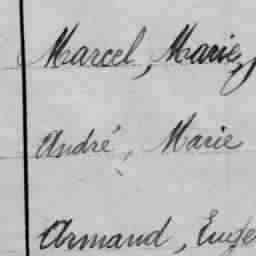 Marcel, Marie,
André, Marie
Armand, Eugè